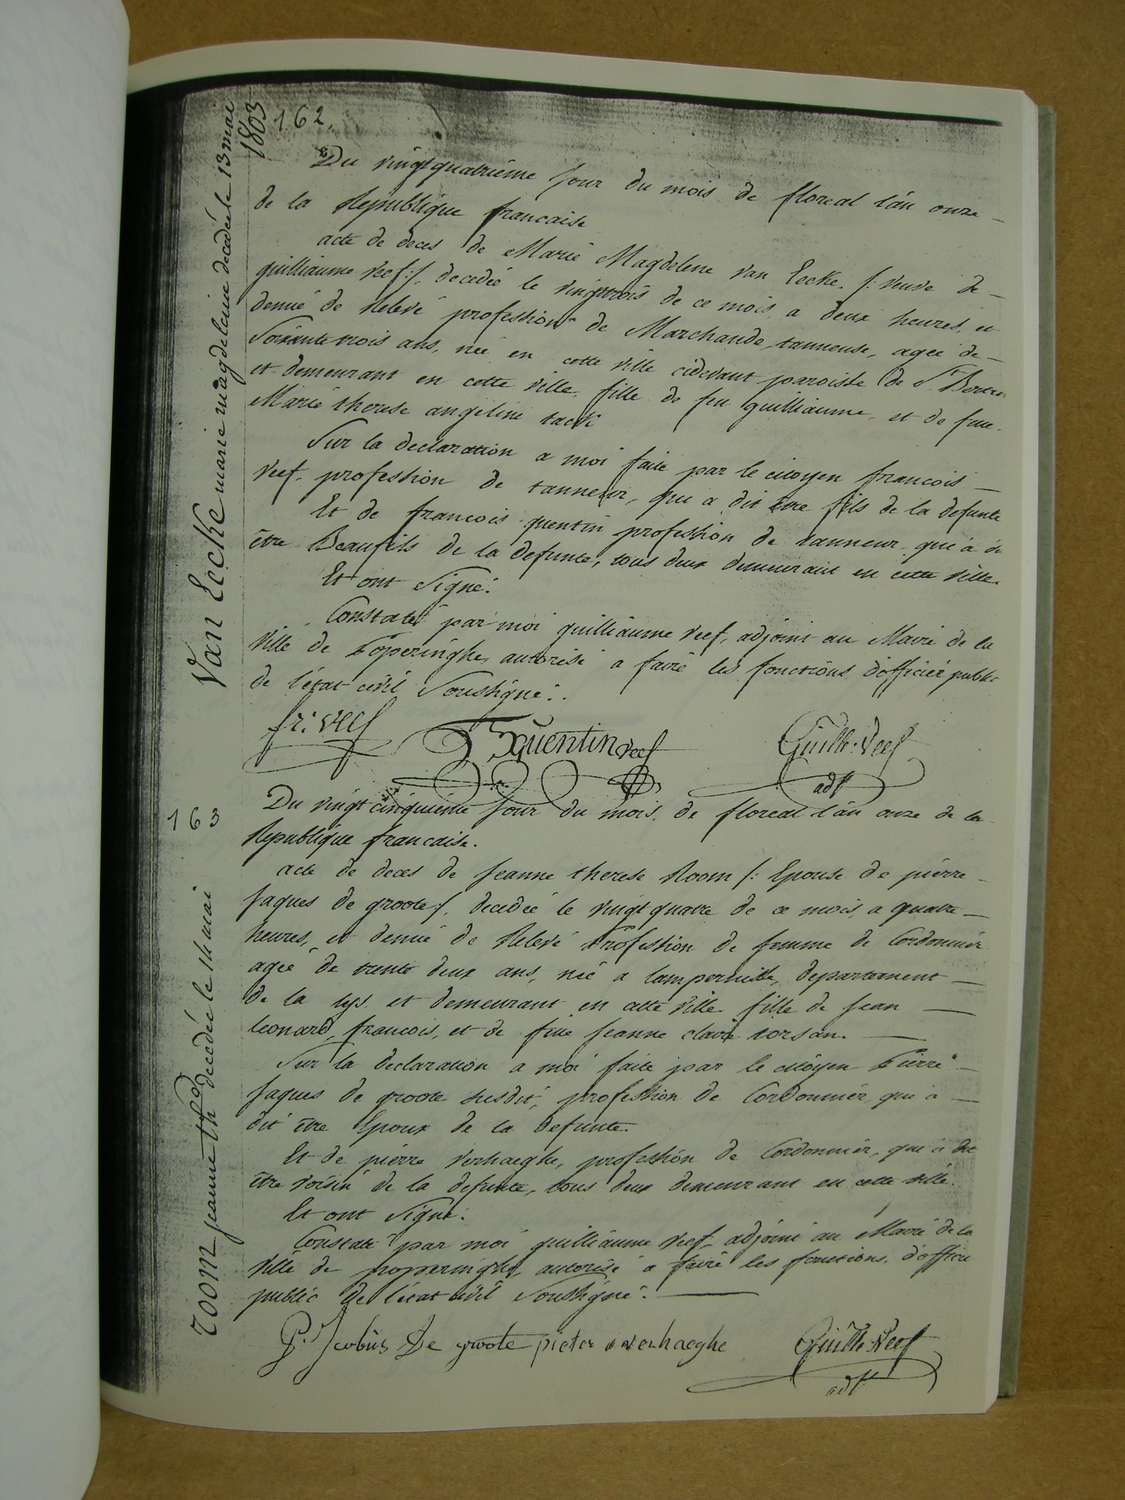 162.
Van Eecke marie magdeleine decedée le 13 mai
1803
Du vingtquatrième jour du mois de floreal l'an onze
de la République francaise
acte de deces de Marie Magdelene van Eecke /: veuve de
guilliaume veef :/, decedée le vingttrois de ce mois a deux heures, et
denué de Relevé profession de Marchande tanneuse, agée de
Soixante trois ans, née en cette ville cidevant paroisse de St Bertin
et demeurant en cette ville, fille de feu guilliaume, et de feue
Marie therese angeline tack
Sur la declaration a moi faite par le citoyen francois
veef, profession de tanneur, qui a dit etre fils de la defunte
Et de francois quentin profession de tanneur, qui a di
être Beaufils de la defunte, tous deux demeurant en cette ville.
Et ont Signé.
Constaté par moi guilliaume veef, adjoint au Maire de la
ville de Poperinghe, autorisé a faire les fonctions d'officier public
de l'état civil Soussigné.
fr: veef
F quentin veef
Guill: Veef
adj
163
room jeanne ths decedée le 14 mai
Du vingt cinquième jour du mois, de floreal l'an onze de la
Republique francaise.
acte de deces de Jeanne therese Room /: Epouse de pierre
jaques de groote :/, decedée le vingt quatre de ce mois, a quatre
heures, et denué de Relevé Profession de femme de Cordonnier
agée de trente deux ans, née a lampernisse, departement
de la Lys, et demeurant en cette ville fille de jean
leonard francois, et de fille jeanne claire torsan.
Sur la declaration a moi faite par le citoyen Pierre
jaques de groote susdit, profession de Cordonnier, qui a
dit être Epoux de la defunte.
Et de pierre verhaeghe, profession de Cordonnier, qui a dit
être voisin de la defunte, tous deux demeurant en cette ville.
Et ont Signé.
Constaté par moi guilliaume veef adjoint au Maire de la
ville de poperinghe, autorisé a faire les fonctions, d'officie
public de l'état civil Soussigné.
P. Jacobus De groote pieter verhaeghe
Guill: Veef
adjt